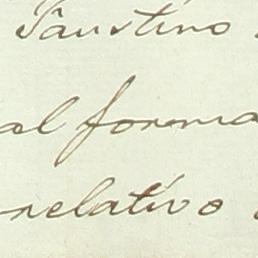 Faustino
al forma
relativo